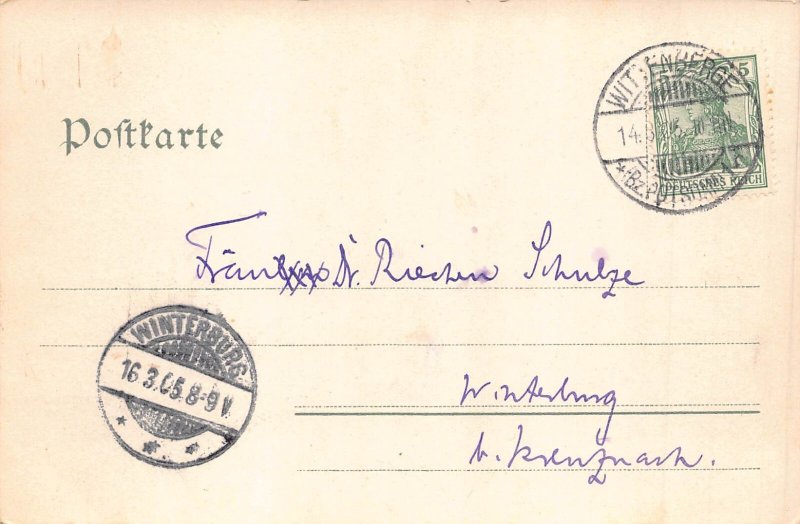 Postkarte
WITTENBERGE
5
14.
* (Bz. POTSDAM)
DEUTSCHES REICH
Dr. Riechen Schulze
WINTERBURG
16.3.05.8-9V.
* * *
Winterburg
b. Kreuznach.